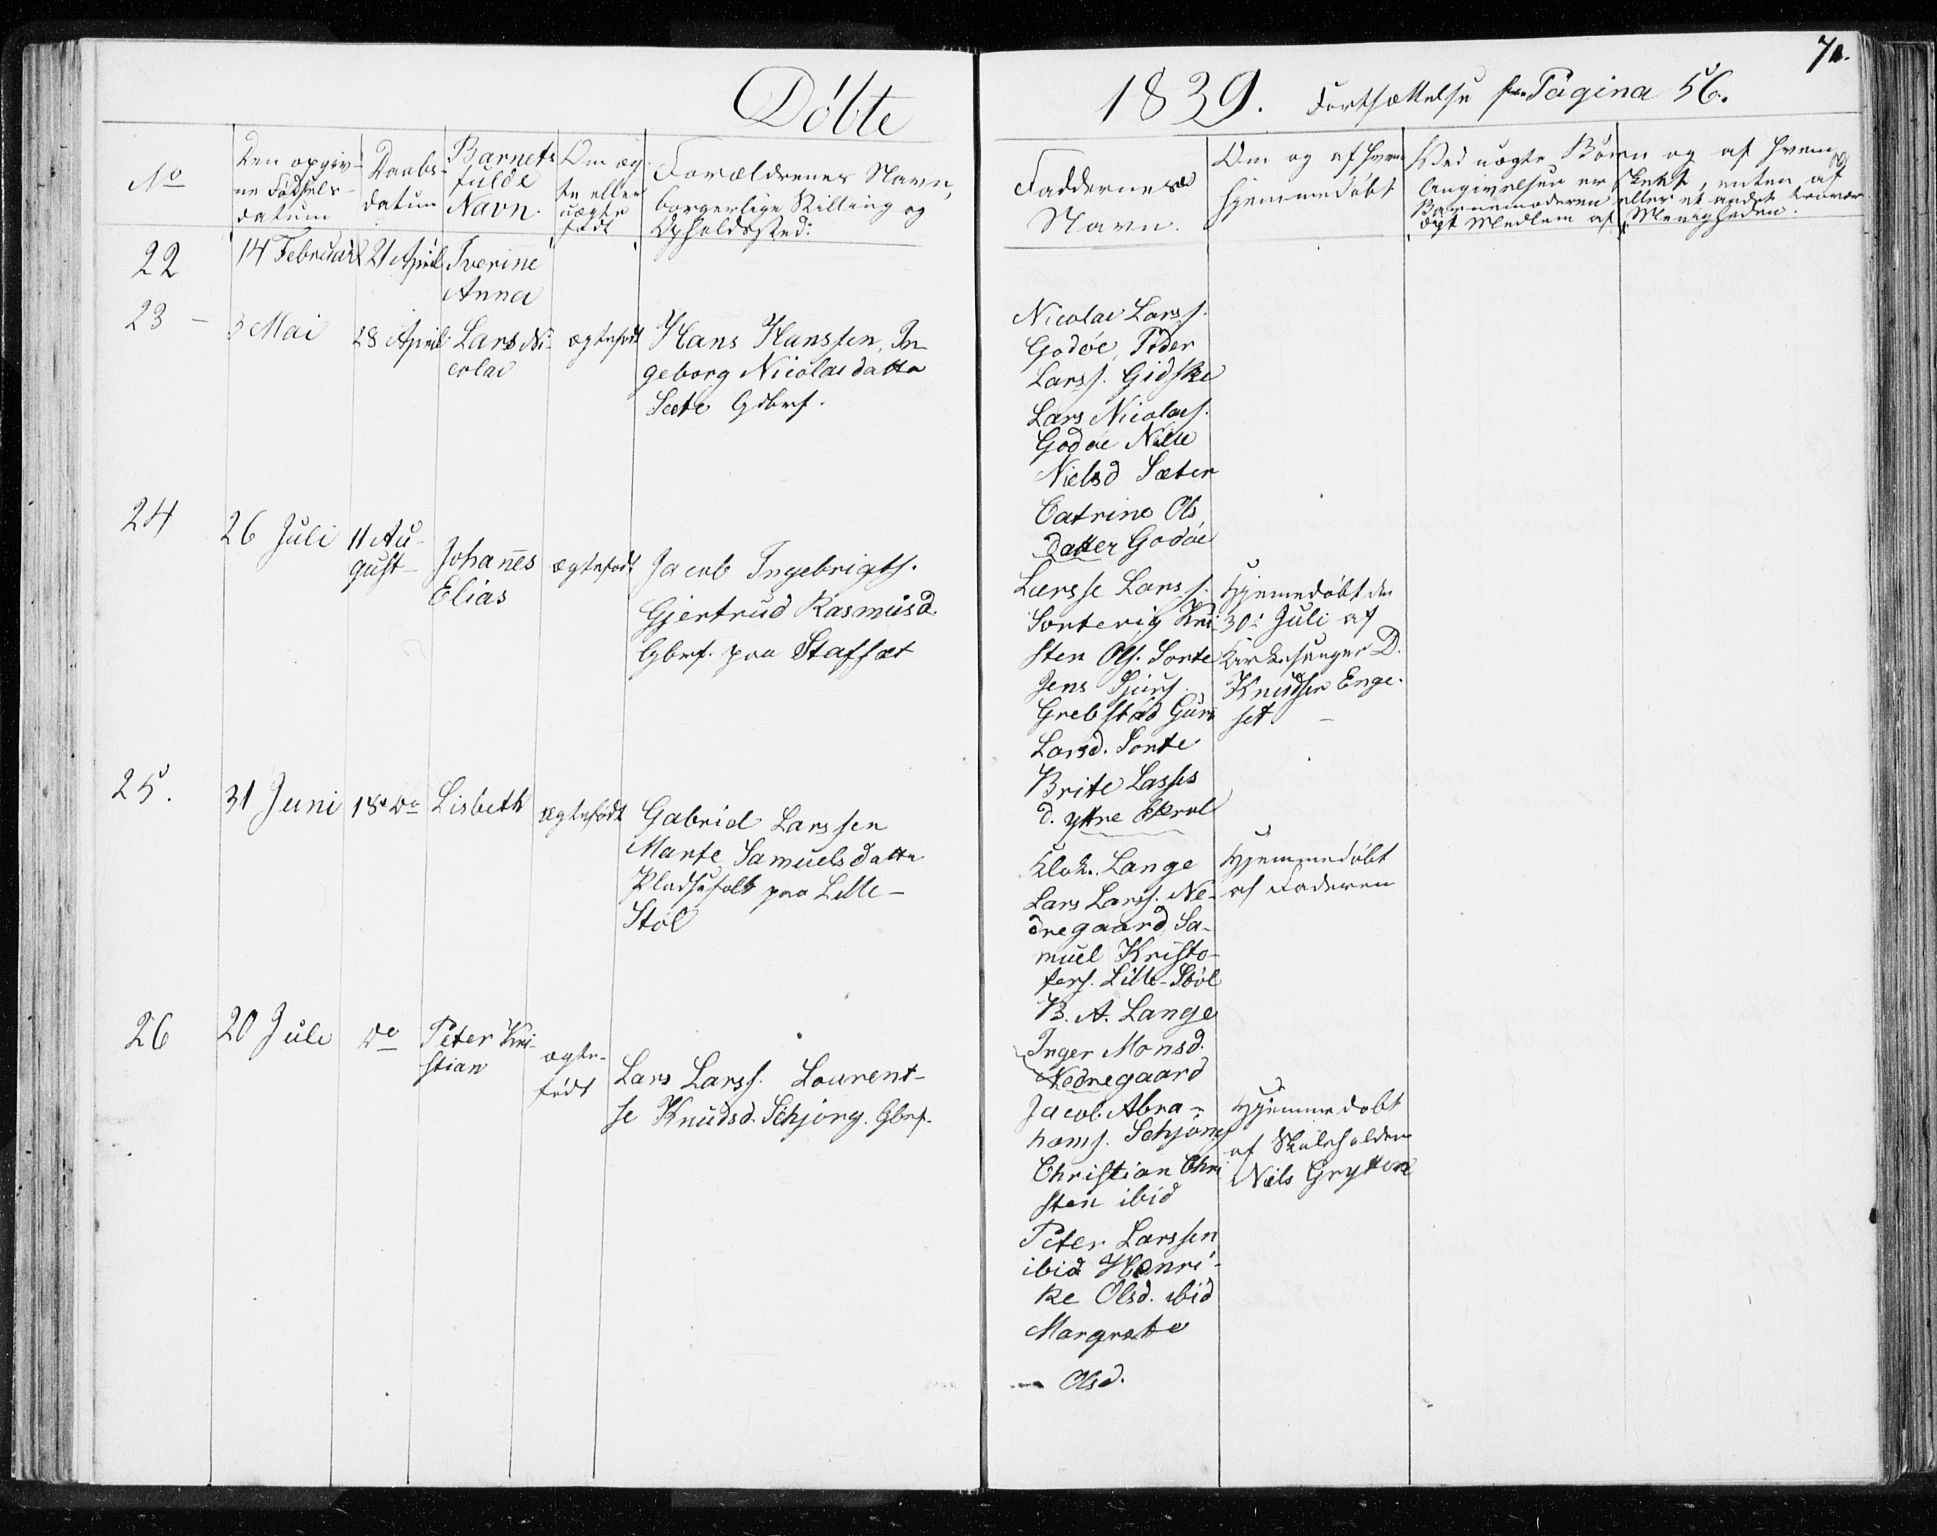 Döbte
1839. Fortsættelse fra Pagina 56.
71.
No
Den opgiv-
ne Fødsels-
datum
Daabs-
datum
Barnets
fulde
Navn.
Om æg-
te eller
uægte
født
Forældrenes Navn,
borgerlige Stilling og
Opholdssted:
Faddernes
Navn.
Om og af hvem
hjemmedöbt
Ved uægte Børn og af hvem
Angivelsen er skeet, enten af
Barnemoderen eller et andet
ægt Medlem af Menigheden.
22
14 Februar
21 April
Iverine
Anna
23 -
3 Mai
28 April
Lars Ni-
colai
ægtefødt
Hans Hanssen, In-
geborg Nicolaidatter
Sæte Gdbrf.
Nicolai Larss.
Godöe, Peder
Larss. Gidske
Lars Nicolais.
Godöe Nille
Nielsd Sæter
Catrine Ols
datter Godöe
24
26 Juli
11 Au-
gust
Johanes
Elias
ægtefødt
Jacob Ingebrigts.
Gjertrud Rasmusd.
Gbrf. paa Staffset
Larsse Larss.
Sortevig Kri-
sten Ols. Sorte
Jens
Grebstad Guri
Larsd. Sorte
Brite Lasses
d. yttre
Hjemedöbt den
30te Juli af
Kirkesanger D.
Knudsen Enge-
set.
25.
31 Juni
18 Do
Lisbeth
ægtefødt
Gabriel Larssen
Marte Samuelsdatter
Pladsefolk paa Lille-
Stöl
Klok. Lange
Lars Larss. Ne-
dregaard, Sa-
muel Kristo-
fers. Lille-Stöl
B. A. Lange
Inger Monsd.
Nedregaard
Hjemmedöbt
af Faderen
26
20 Juli
Do
Peter Kri-
stian
ægte-
født
Lars Larss. Lourent-
se Knudsd. Schjong. Gbrf.
Jacob Abra-
hams. Schjong
Christian Chri
sten ibid
Peter Larssen
ibid Henri-
ke Olsd. ibid
Margrete
Olsd.
Hjemmedöbt
af Skoleholder
Niels Grytten